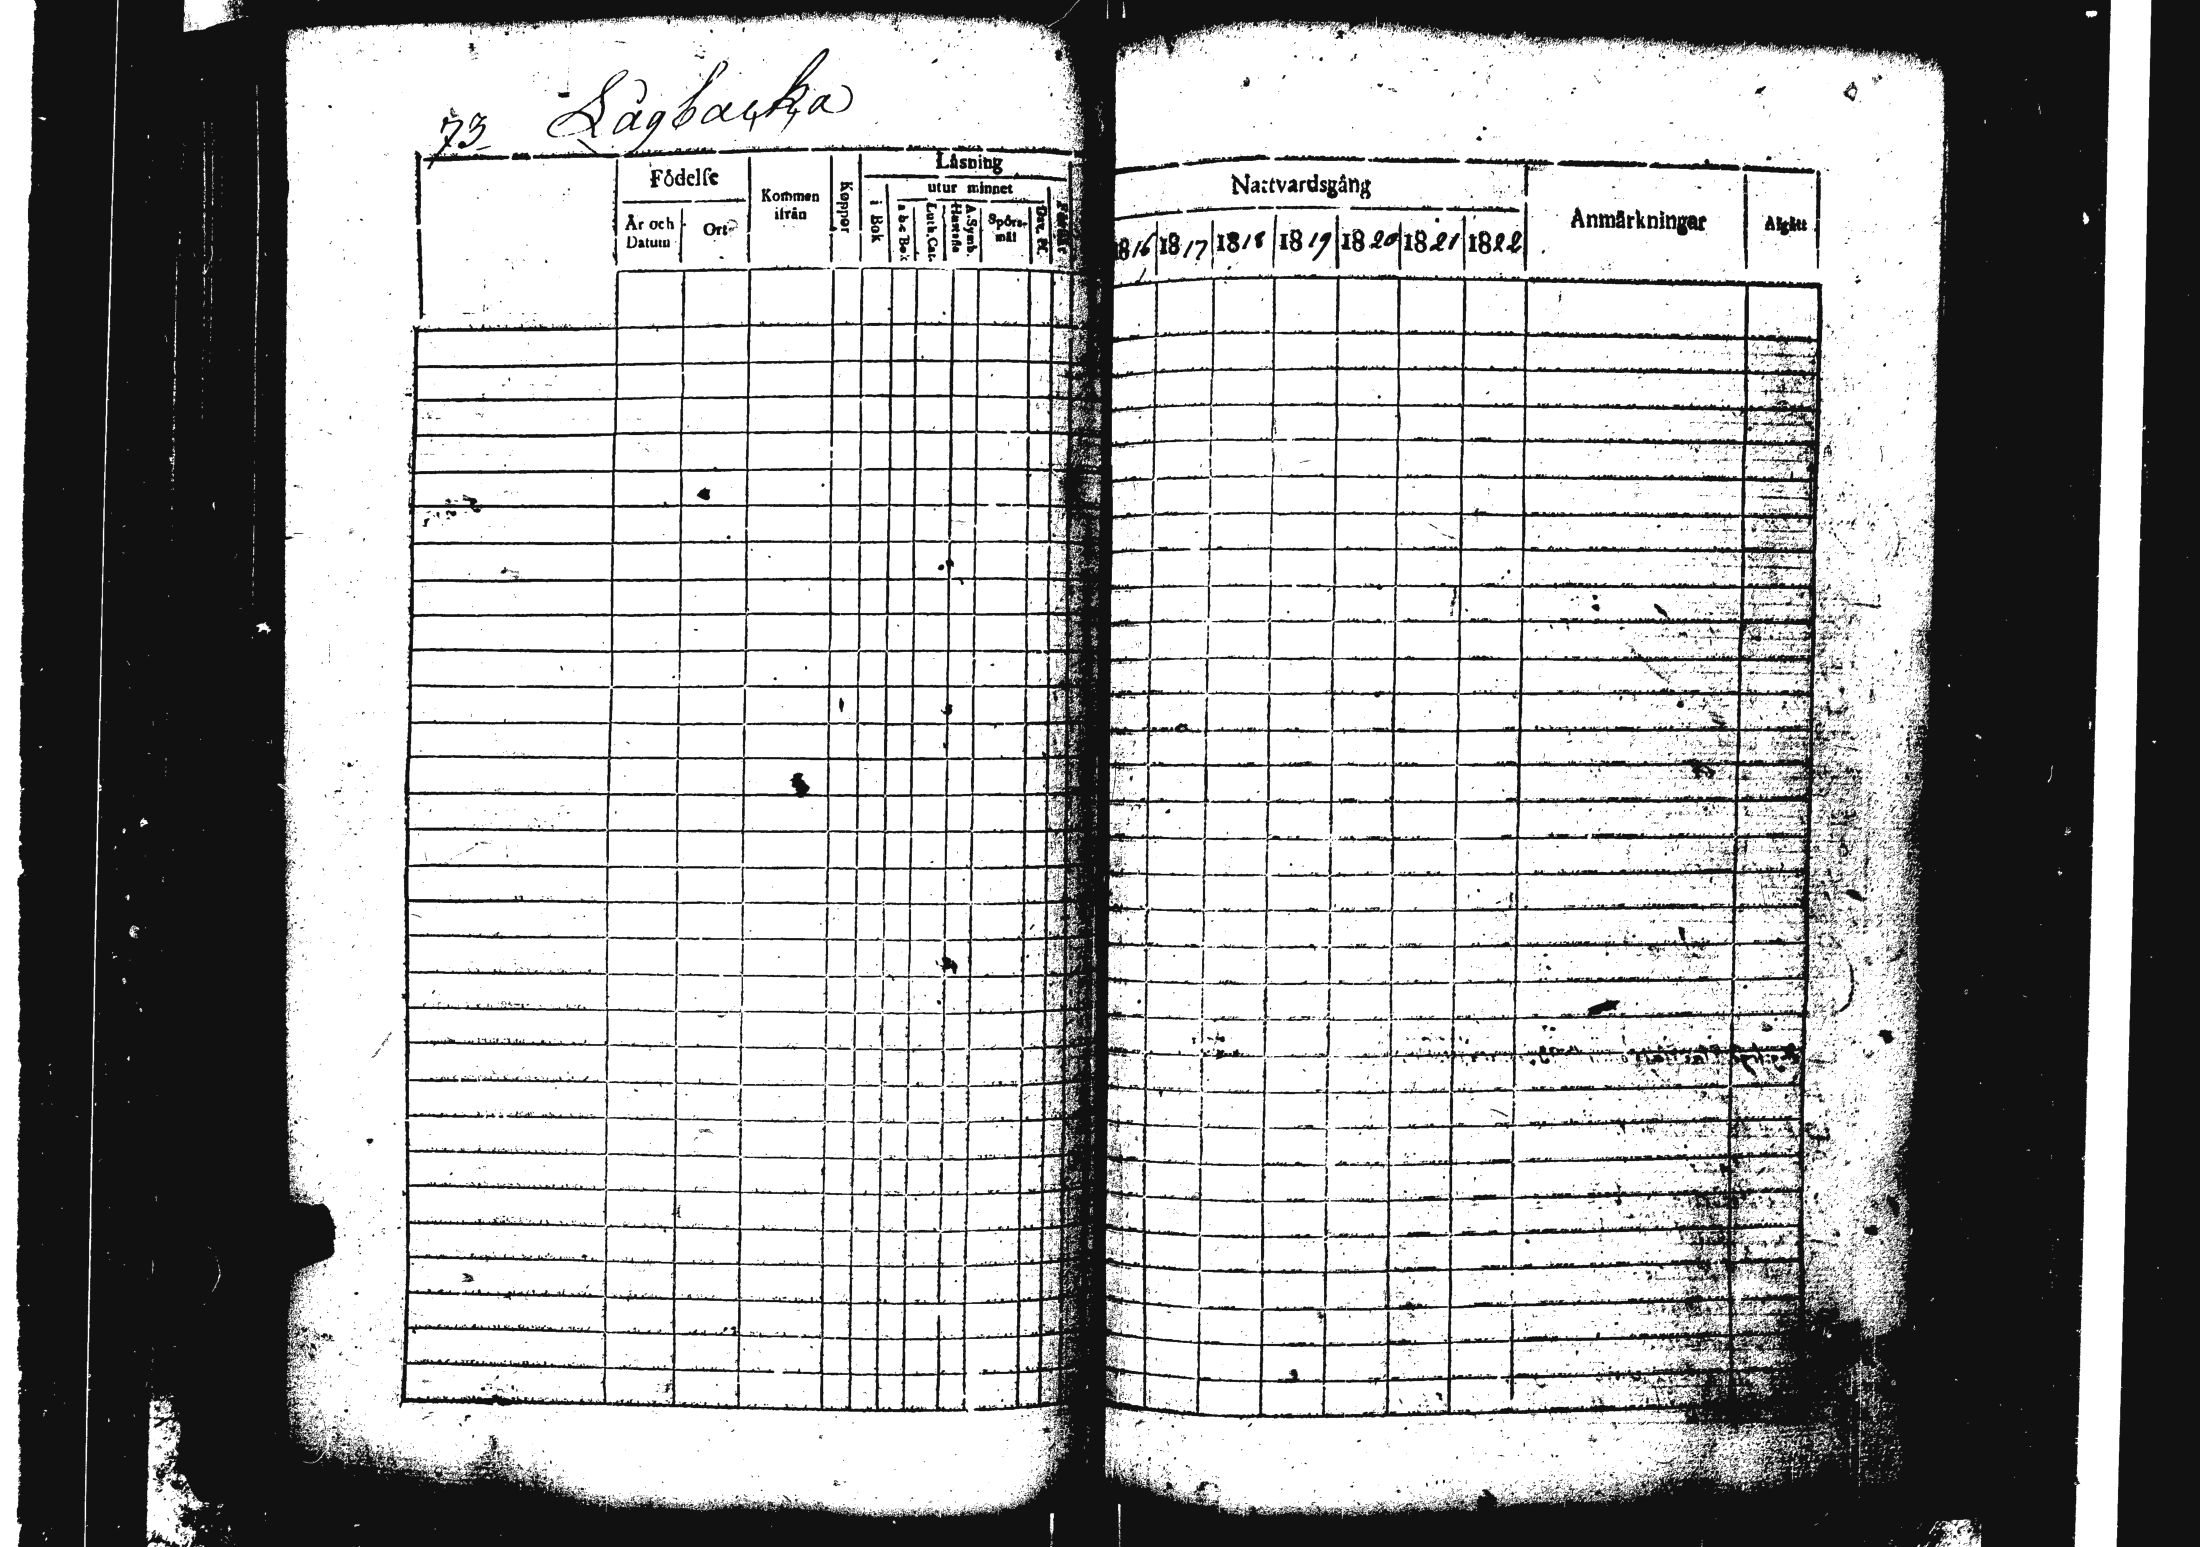 73 Lågbacka
Födelse
År och Datum
Ort
Kommen ifrån
Koppor
Läsning
i Bok
utur minnet
a b c Bok
Luth. Cat.
Hustafla
A. Symb.
Spörs-mål
Dav. Ps.
Nattvardsgång
1816 1817 1818 1819 1820 1821 1822
Anmärkningar
Afgått